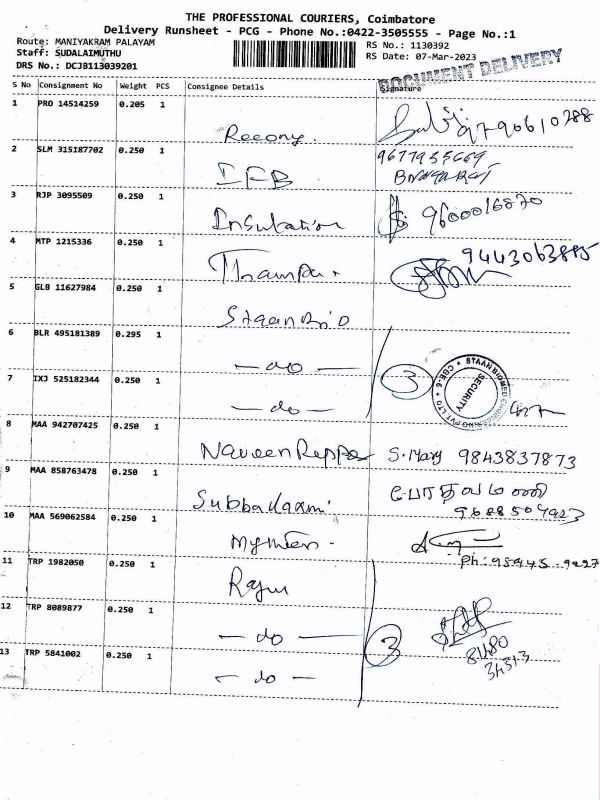 THE PROFESSIONAL COURIERS, Coimbatore
Delivery Runsheet - PCG - Phone No.:0422-3505555 - Page No.:1
Route: MANIYAKRAM PALAYAM
Staff: SUDALAIMUTHU
DRS No.: DCJB113039201
RS No.: 1130392
RS Date: 07-Mar-2023
DOCUMENT DELIVERY
S No Consignment No Weight PCS Consignee Details Signature
1 PRO 14514259 0.205 1
9790610288
2 SLM 315187702 0.250 1 IFB 9677955669
3 RJP 3095509 0.250 1 Insulation 9600016870
4 MTP 1215336 0.250 1 9443063885
5 GLB 11627984 0.250 1 Staan Bio
6 BLR 495181389 0.295 1 - do -
3
STAAN BIOMED ENGINEERING PVT LTD CBE-6
SECURITY
7 IXJ 525182344 0.250 1 - do -
8 MAA 942707425 0.250 1 Naveen S. Mary 9843837873
9 MAA 858763478 0.250 1 Subbalaxmi
9688504923
10 MAA 569062584 0.250 1
Ph: 98945-9227
11 TRP 1982050 0.250 1
12 TRP 8089877 0.250 1 - do - 3
81480
34313
13 TRP 5841002 0.250 1 - do -